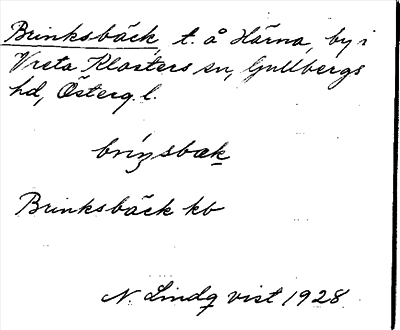 Brinksbäck, t. å Härna, by i
Vreta Klosters sn, Gullbergs
hd, Österg. l.
briŋsbæk
Brinksbäck kb
N. Lindq vist 1928